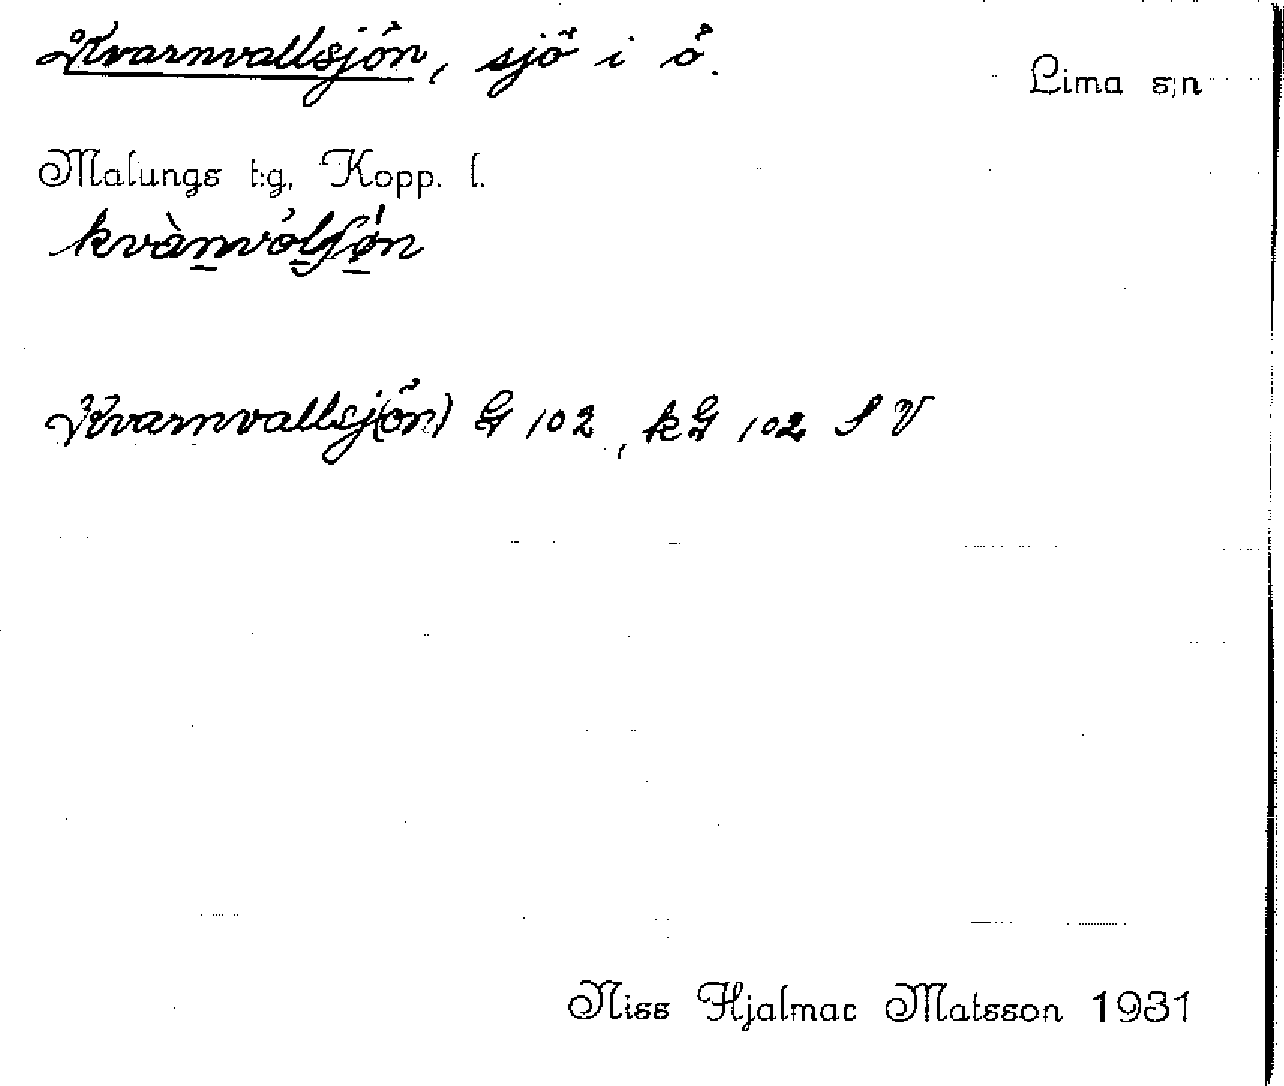 Kvarnvallsjön, sjö i ö.
Lima s:n
Malungs t:g, Kopp. l.
Kvarnvallsj(ön) G 102, kG 102 S V
Niss Hjalmar Matsson 1931